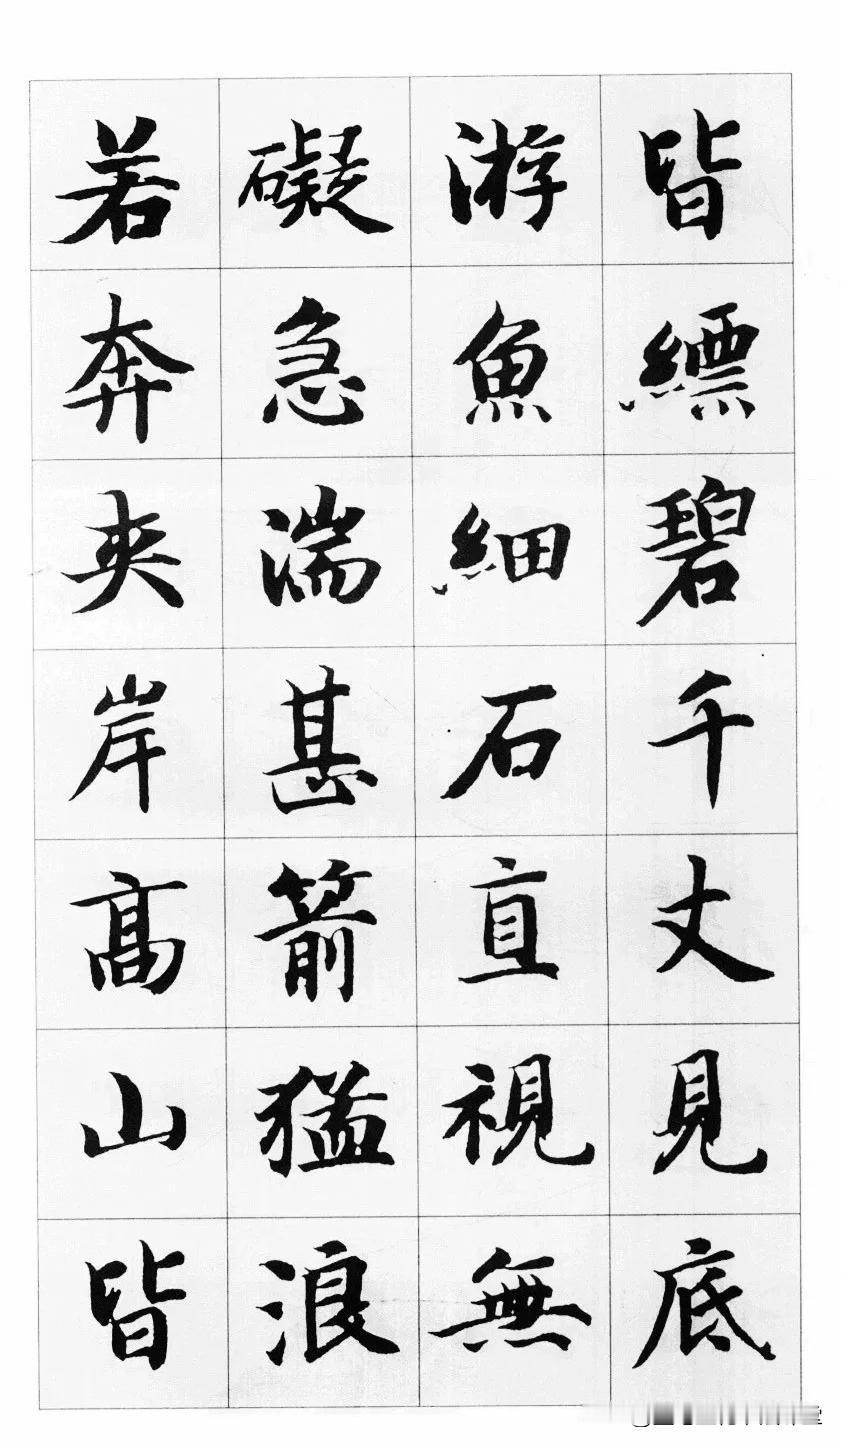 皆縹碧千丈見底
游魚細石直視無
礙急湍甚箭猛浪
若奔夹岸高山皆